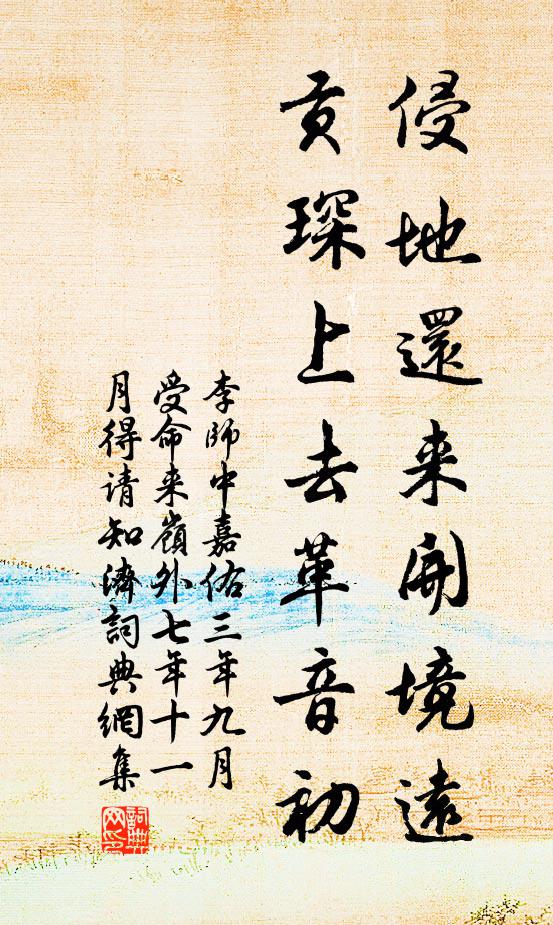 侵地還来開境遠
貢琛上去革音初
李師中嘉佑三年九月
受命来嶺外七年十一
月得请知濟詞典網集
詞典
网印